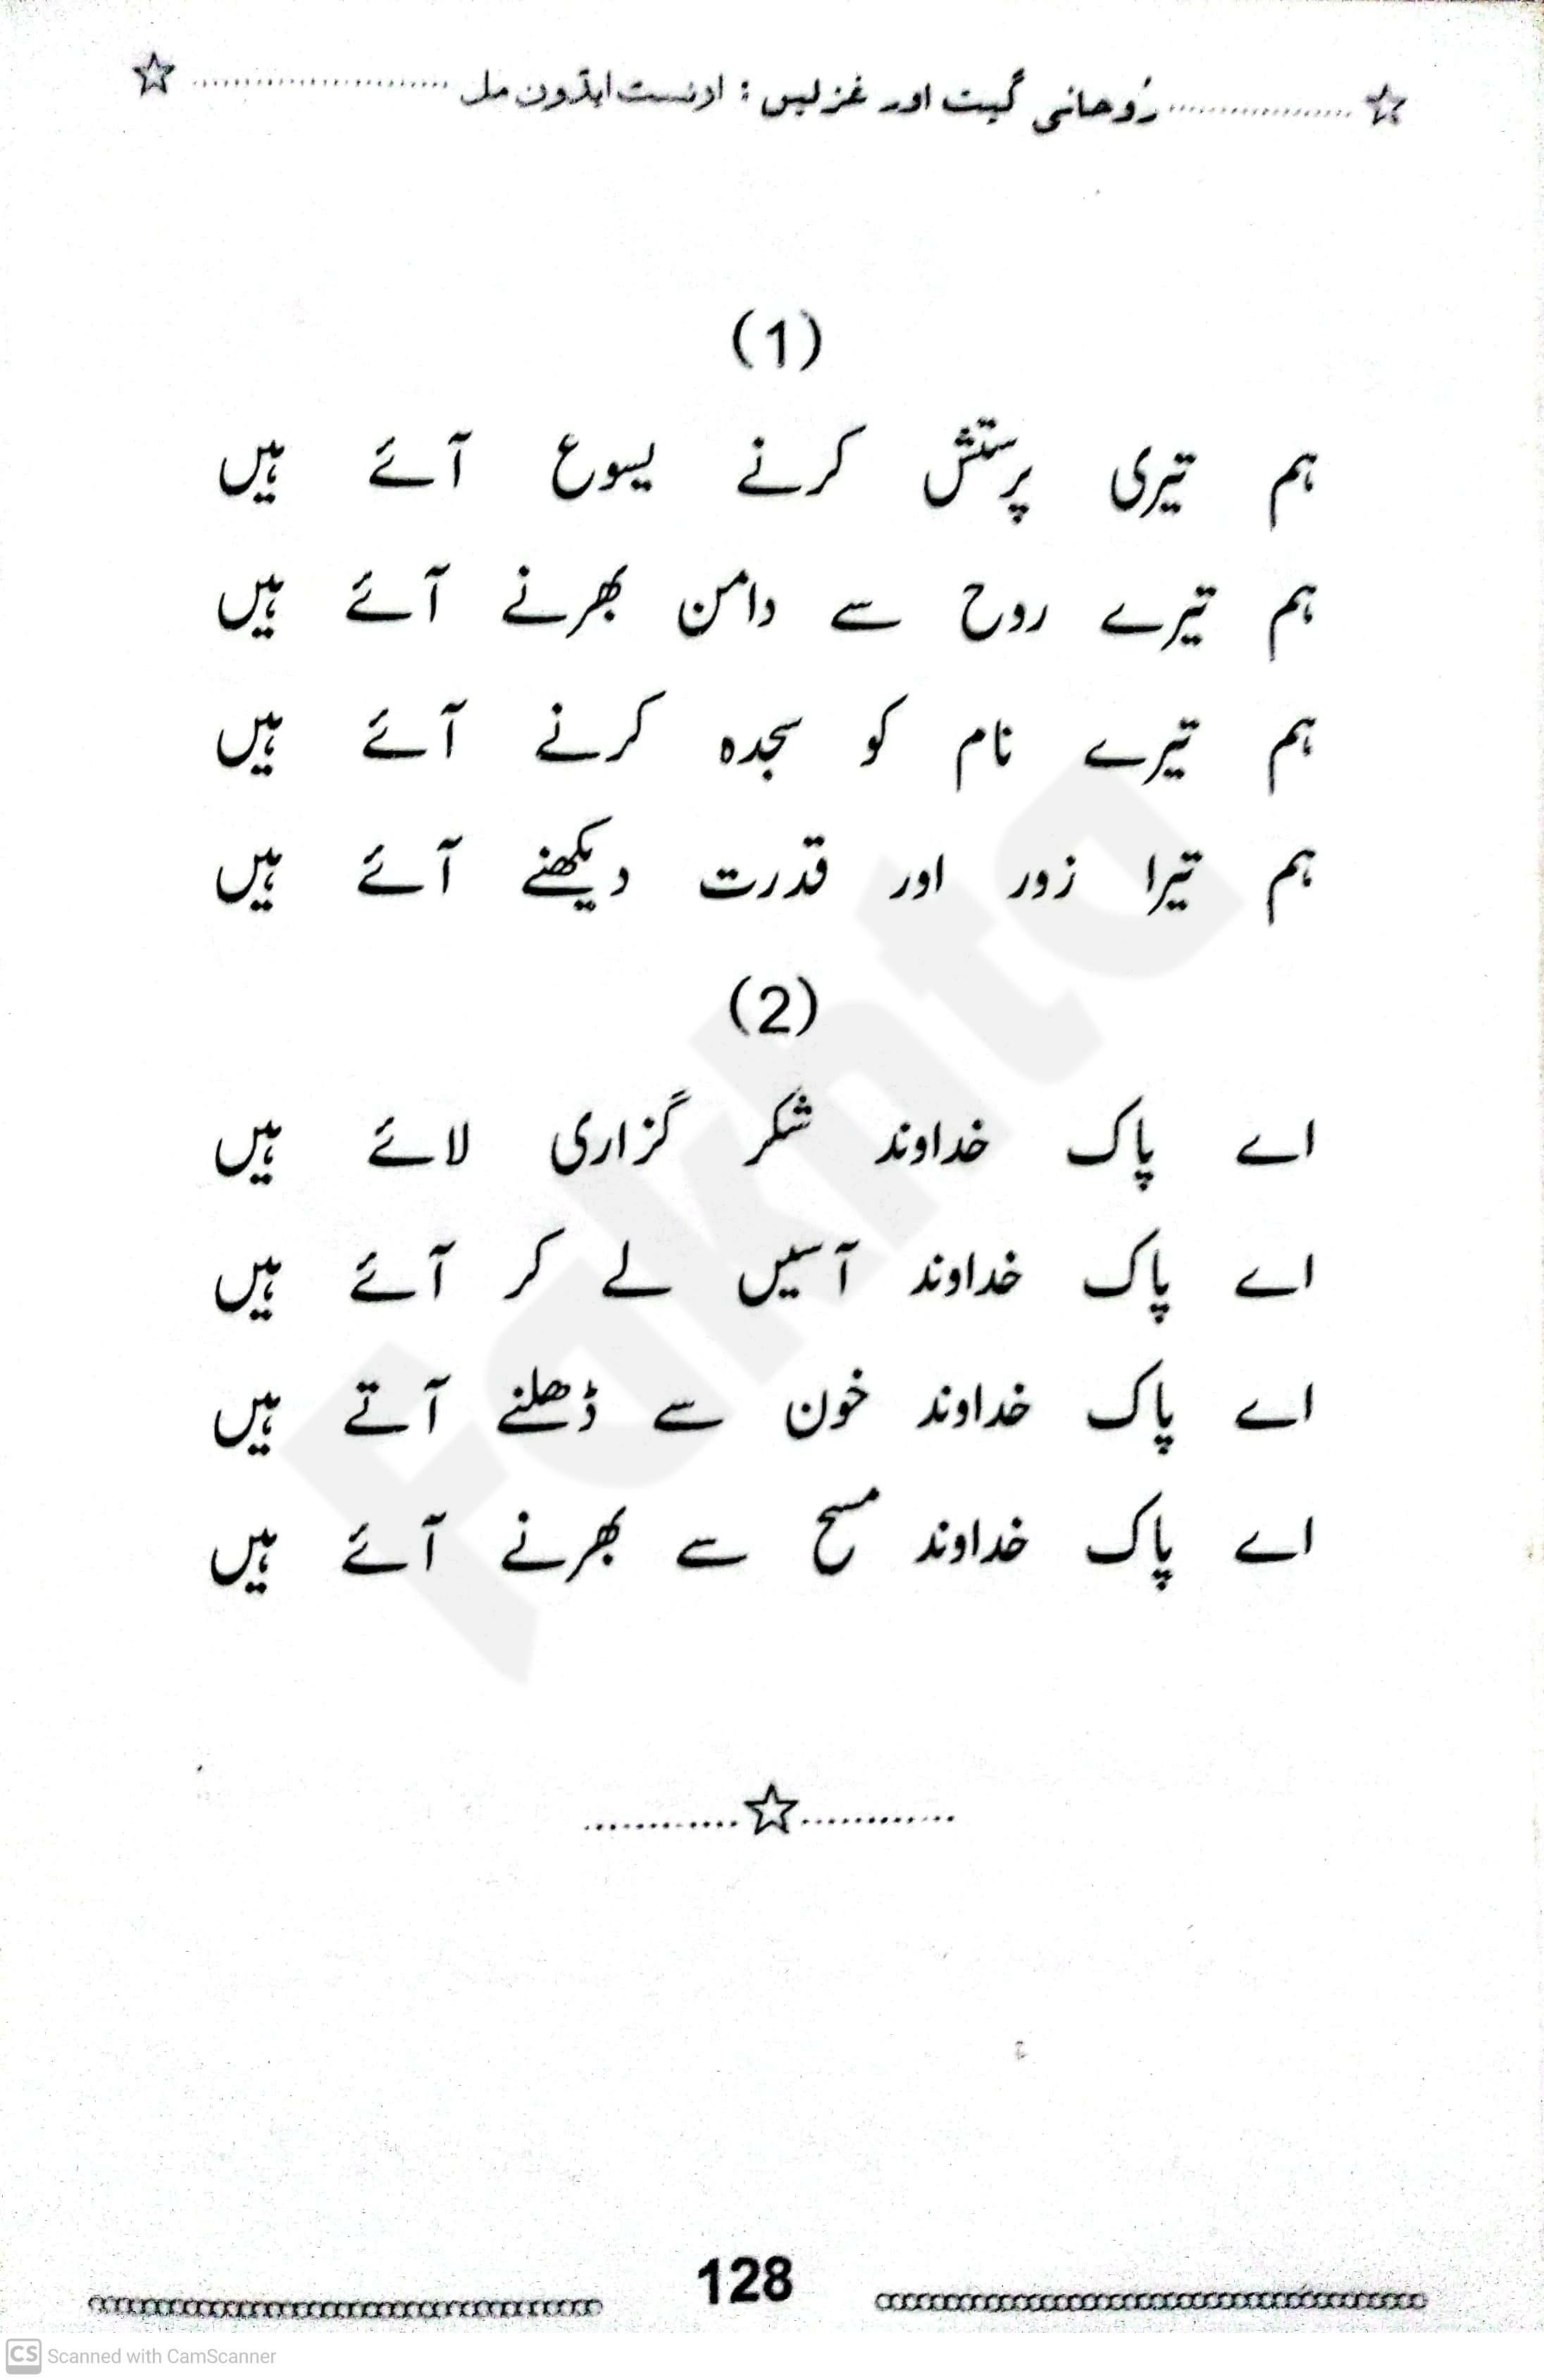 ☆ .................. رُوحانی گیت اور غزلیں : ارنسٹ ایڈون مل .................. ☆
(1)
ہم تیری پرستش کرنے یسوع آئے ہیں
ہم تیرے روح سے دامن بھرنے آئے ہیں
ہم تیرے نام کو سجدہ کرنے آئے ہیں
ہم تیرا زور اور قدرت دیکھنے آئے ہیں
(2)
اے پاک خداوند شکر گزاری لائے ہیں
اے پاک خداوند آسیں لے کر آئے ہیں
اے پاک خداوند خون سے ڈھلنے آتے ہیں
اے پاک خداوند مسح سے بھرنے آئے ہیں
............☆............
128
Fakhta
CS Scanned with CamScanner